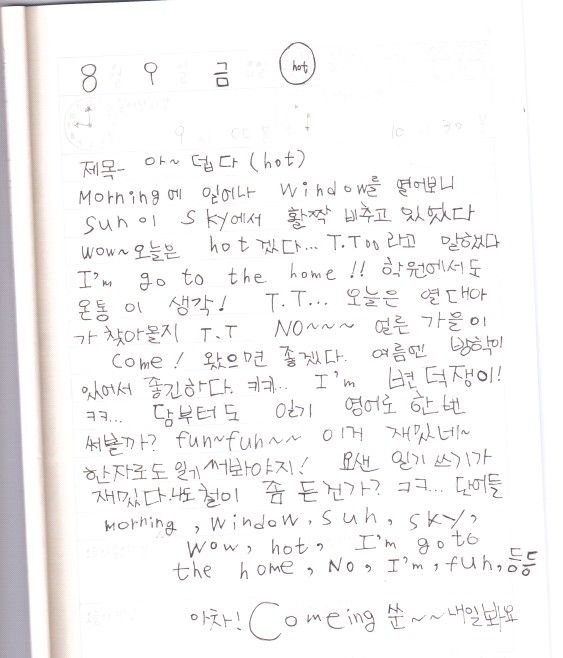 8 9 금 hot
제목- 아~ 덥다 (hot)
Morning에 일어나 Window를 열어보니
Sun이 Sky에서 활짝 비추고 있었다
Wow~ 오늘은 hot겠다... T.T 라고 말했다
I'm go to the home!! 학원에서도
온통 이 생각! T.T... 오늘은 열대야
가 찾아올지 T.T NO~~~ 얼른 가을이
Come! 왔으면 좋겠다. 여름엔 방학이
있어서 좋긴하다. 키키... I'm 변덕쟁이!
ㅋㅋ... 담부터도 일기 영어로 한번
써볼까? fun~fun~~ 이거 재밌네~
한자로도 일기 써봐야지! 요샌 일기 쓰기가
재밌다. 나도 철이 좀 든건가? ㅋㅋ... 단어들
morning, window, sun, sky,
Wow, hot, I'm go to
the home, No, I'm, fun, 등등
아차! Comeing 쑨~~ 내일봐요